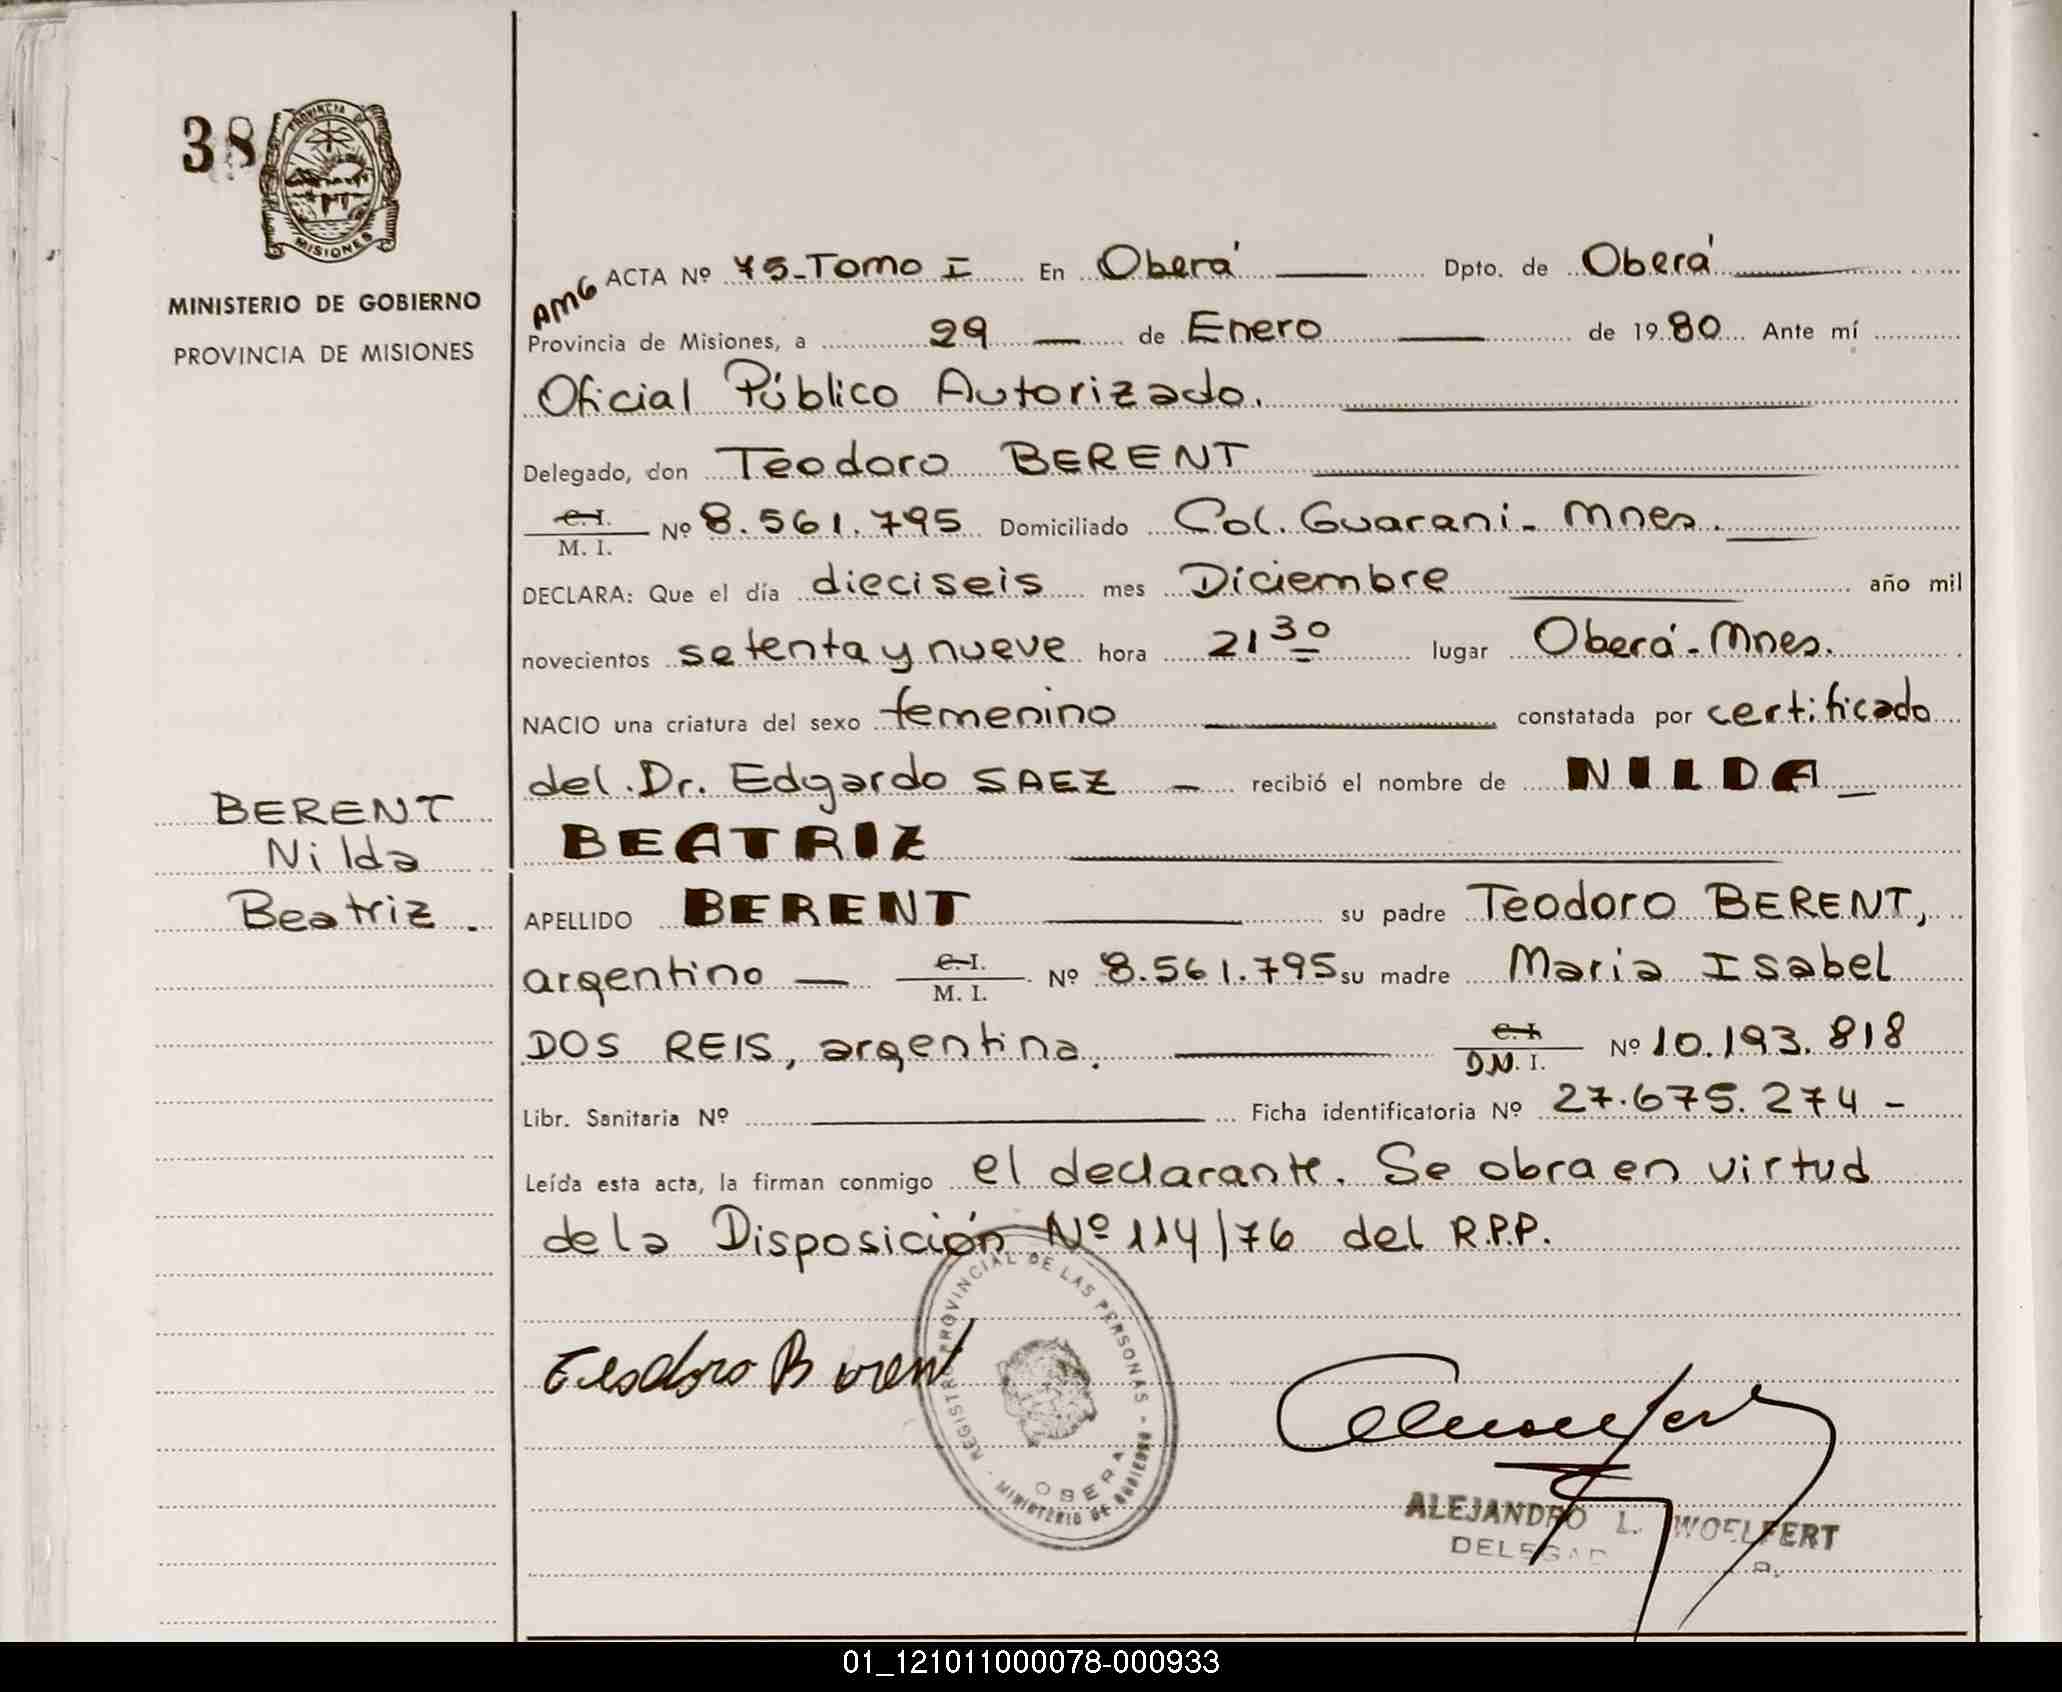 38
PROVINCIA DE
MISIONES
MINISTERIO DE GOBIERNO
PROVINCIA DE MISIONES
AMG
ACTA Nº 75-Tomo I En Oberá Dpto. de Oberá
Provincia de Misiones, a 29 de Enero de 1980 Ante mí
Oficial Público Autorizado.
Delegado, don Teodoro BERENT
C. I.
M. I. Nº 8.561.795 Domiciliado Col. Guarani - Mnes.
DECLARA: Que el día dieciseis mes Diciembre año mil
novecientos setenta y nueve hora 21 30 lugar Oberá - Mnes.
NACIO una criatura del sexo femenino constatada por certificado
del Dr. Edgardo SAEZ — recibió el nombre de NILDA
BEATRIZ
BERENT
Nilda
Beatriz.
APELLIDO BERENT su padre Teodoro BERENT,
argentino — C. I.
M. I. Nº 8.561.795 su madre Maria Isabel
DOS REIS, argentina. C. I.
D.N. I. Nº 10.193.818
Libr. Sanitaria Nº Ficha identificatoria Nº 27.675.274 -
Leída esta acta, la firman conmigo el declarante. Se obra en virtud
de la Disposición Nº 114/76 del R.P.P.
Teodoro Berent
REGISTRO PROVINCIAL DE LAS PERSONAS - MINISTERIO DE GOBIERNO
OBERA
ALEJANDRO L. WOELFERT
01_121011000078-000933